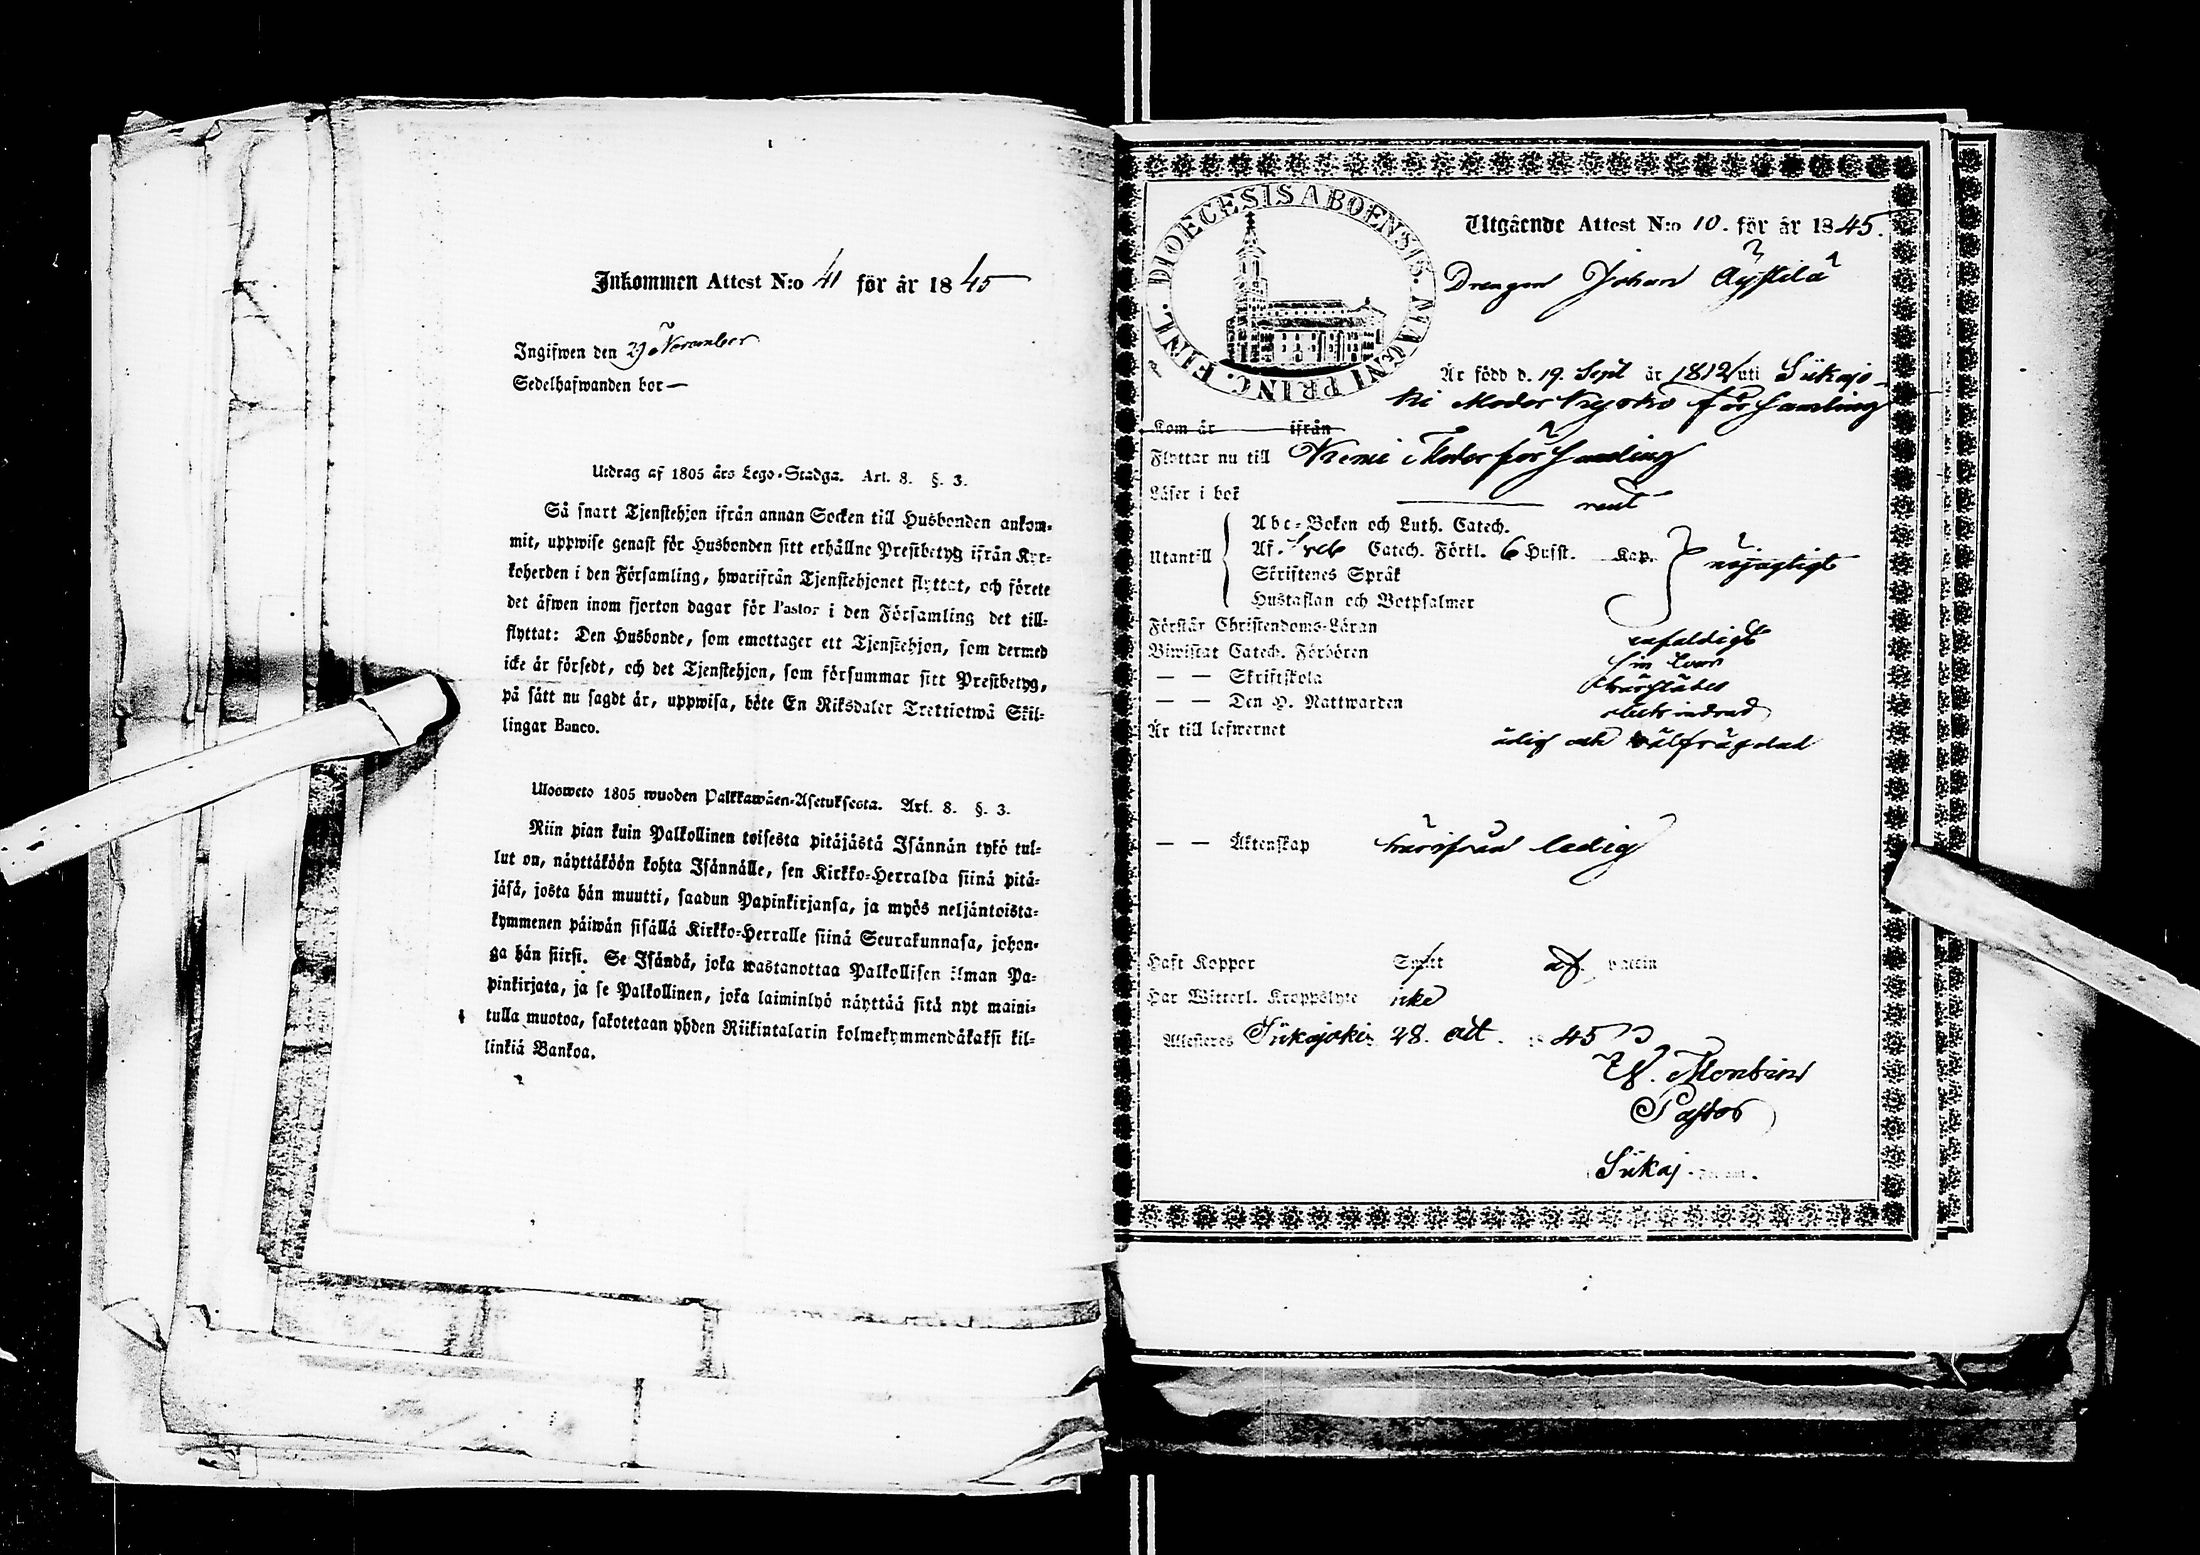 Inkommen Attest N:o 41 för år 1845
Ingifwen den 29 November
Sedelhafwanden bor —
Utdrag af 1805 års Lego-Stadga. Art. 8. §. 3.
Så snart Tjenstehjon ifrån annan Socken till Husbonden ankom-
mit, uppwise genast för Husbonden sitt erhållne Prestbetyg ifrån Kyr-
koherden i den Församling, hwarifrån Tjenstehjonet flyttat, och förete
det äfwen inom fjorton dagar för Pastor i den Församling det till-
flyttat: Den Husbonde, som emottager ett Tjenstehjon, som dermed
icke är försedt, och det Tjenstehjon, som försummar sitt Prestbetyg,
på sätt nu sagdt är, uppwisa, böte En Riksdaler Trettiotwå Skil-
lingar Banco.
Uloosweto 1805 wuoden Palkkawäen-Asetuksesta. Art. 8. §. 3.
Niin pian kuin Palkollinen toisesta pitäjästä Isännän tykö tul-
lut on, näyttäköön kohta Isännälle, sen Kirkko-Herralda siinä pitä-
jäsä, josta hän muutti, saadun Papinkirjansa, ja myös neljäntoista-
kymmenen päiwän sisällä Kirkko-Herralle siinä Seurakunnasa, johon-
ga hän siirsi. Se Isändä, joka wastanottaa Palkollisen ilman Pa-
pinkirjata, ja se Palkollinen, joka laiminlyö näyttää sitä nyt maini-
tulla muotoa, sakotetaan yhden Riikintalarin kolmekymmendäkaksi kil-
linkiä Bankoa.
DIOECESIS ABOENSIS. MAGNI PRINC. FINL.
Utgående Attest N:o 10. för år 1845.
Drengen Johan Äystilä
Är född d. 19. Sept år 1812 uti Siikajo-
ki Moder Kyrko församling
Kom år ifrån
Flyttar nu till Kemi Moderförsamling
Läser i bok rent
Abc-Boken och Luth. Catech.
Utantill Af. Catech. Förkl. 6 Hufst. Kap. nöjagtigt
Skriftenes Språk
Hustaflan och Botpsalmer
Förstår Christendoms-Läran enfaldigt
Biwistat Catech. Förhören
— — Skriftskola
— — Den H. Nattwarden
Är till lefwernet ärlig och wälfrägdad
— — Äktenskap härifrån ledig
Haft Koppor af vaccin
Har Witterl. Kroppslyte icke
Attesteras Siikajoki 28. oct. 1845
Pastor
Siikaj.